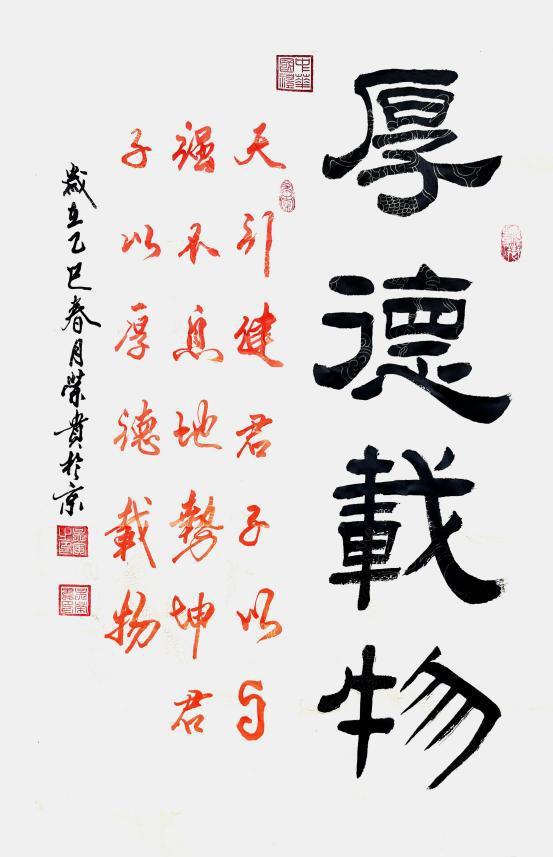 厚德載物
天行健君子以自
强不息地勢坤君
子以厚德載物
歲在乙巳春月榮貴於京